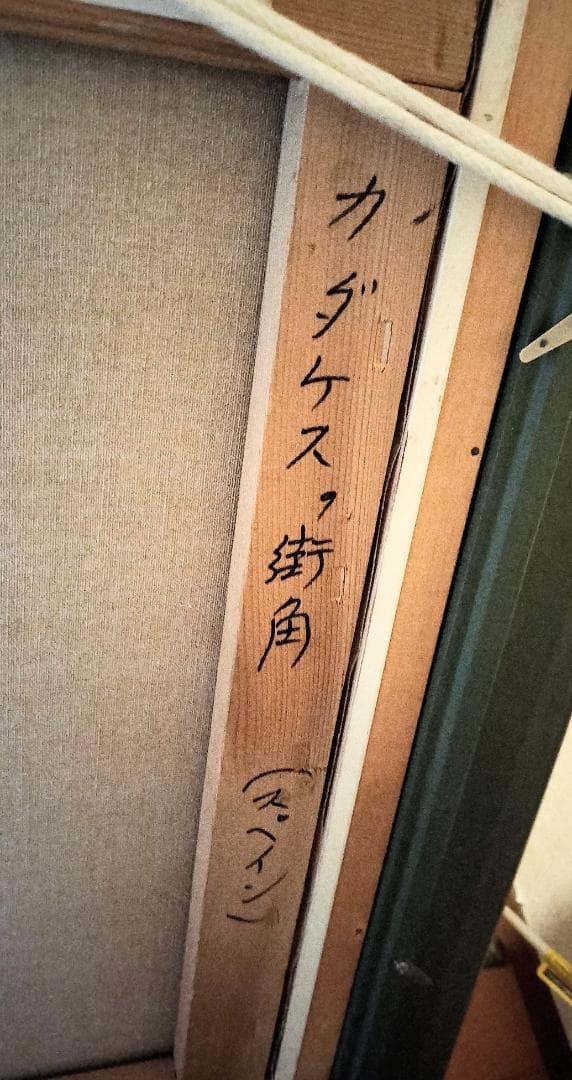 カダケスの街角
(スペイン)